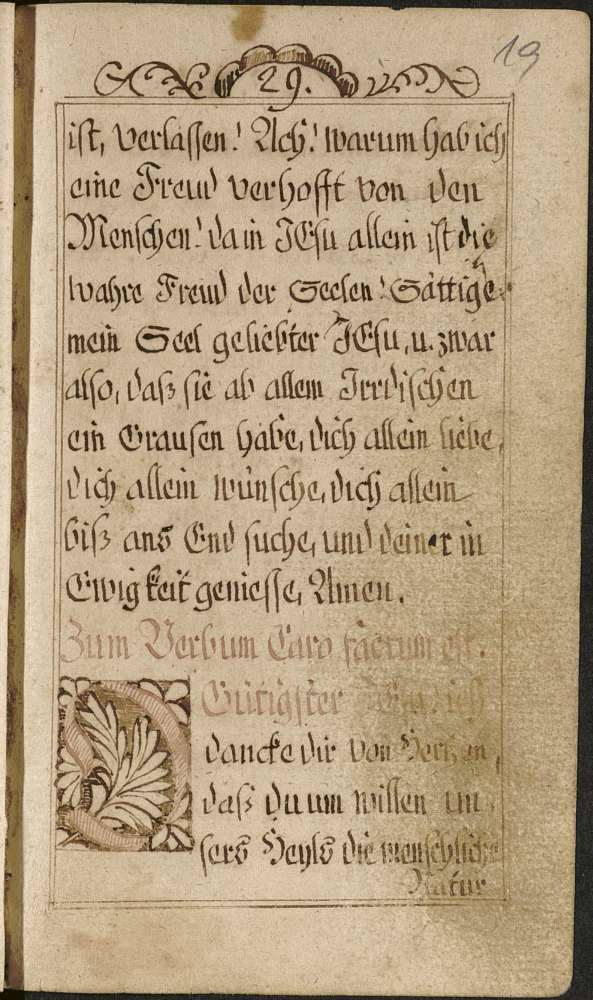 19
29.
ist, verlassen! Ach! warum hab ich
eine Freud verhofft von den
Menschen! da in JEsu allein ist die
wahre Freud der Seelen! Sättige
mein Seel geliebter JEsu, u. zwar
also, daß sie ab allem Irrdischen
ein Grausen habe, dich allein liebe,
dich allein wünsche, dich allein
biß ans End suche, und deiner in
Ewigkeit geniesse, Amen.
Zum Verbum Caro factum est.
O Gütigster ich
dancke dir von Hertzen,
daß du um willen un
sers Heyls die menschliche
Natur